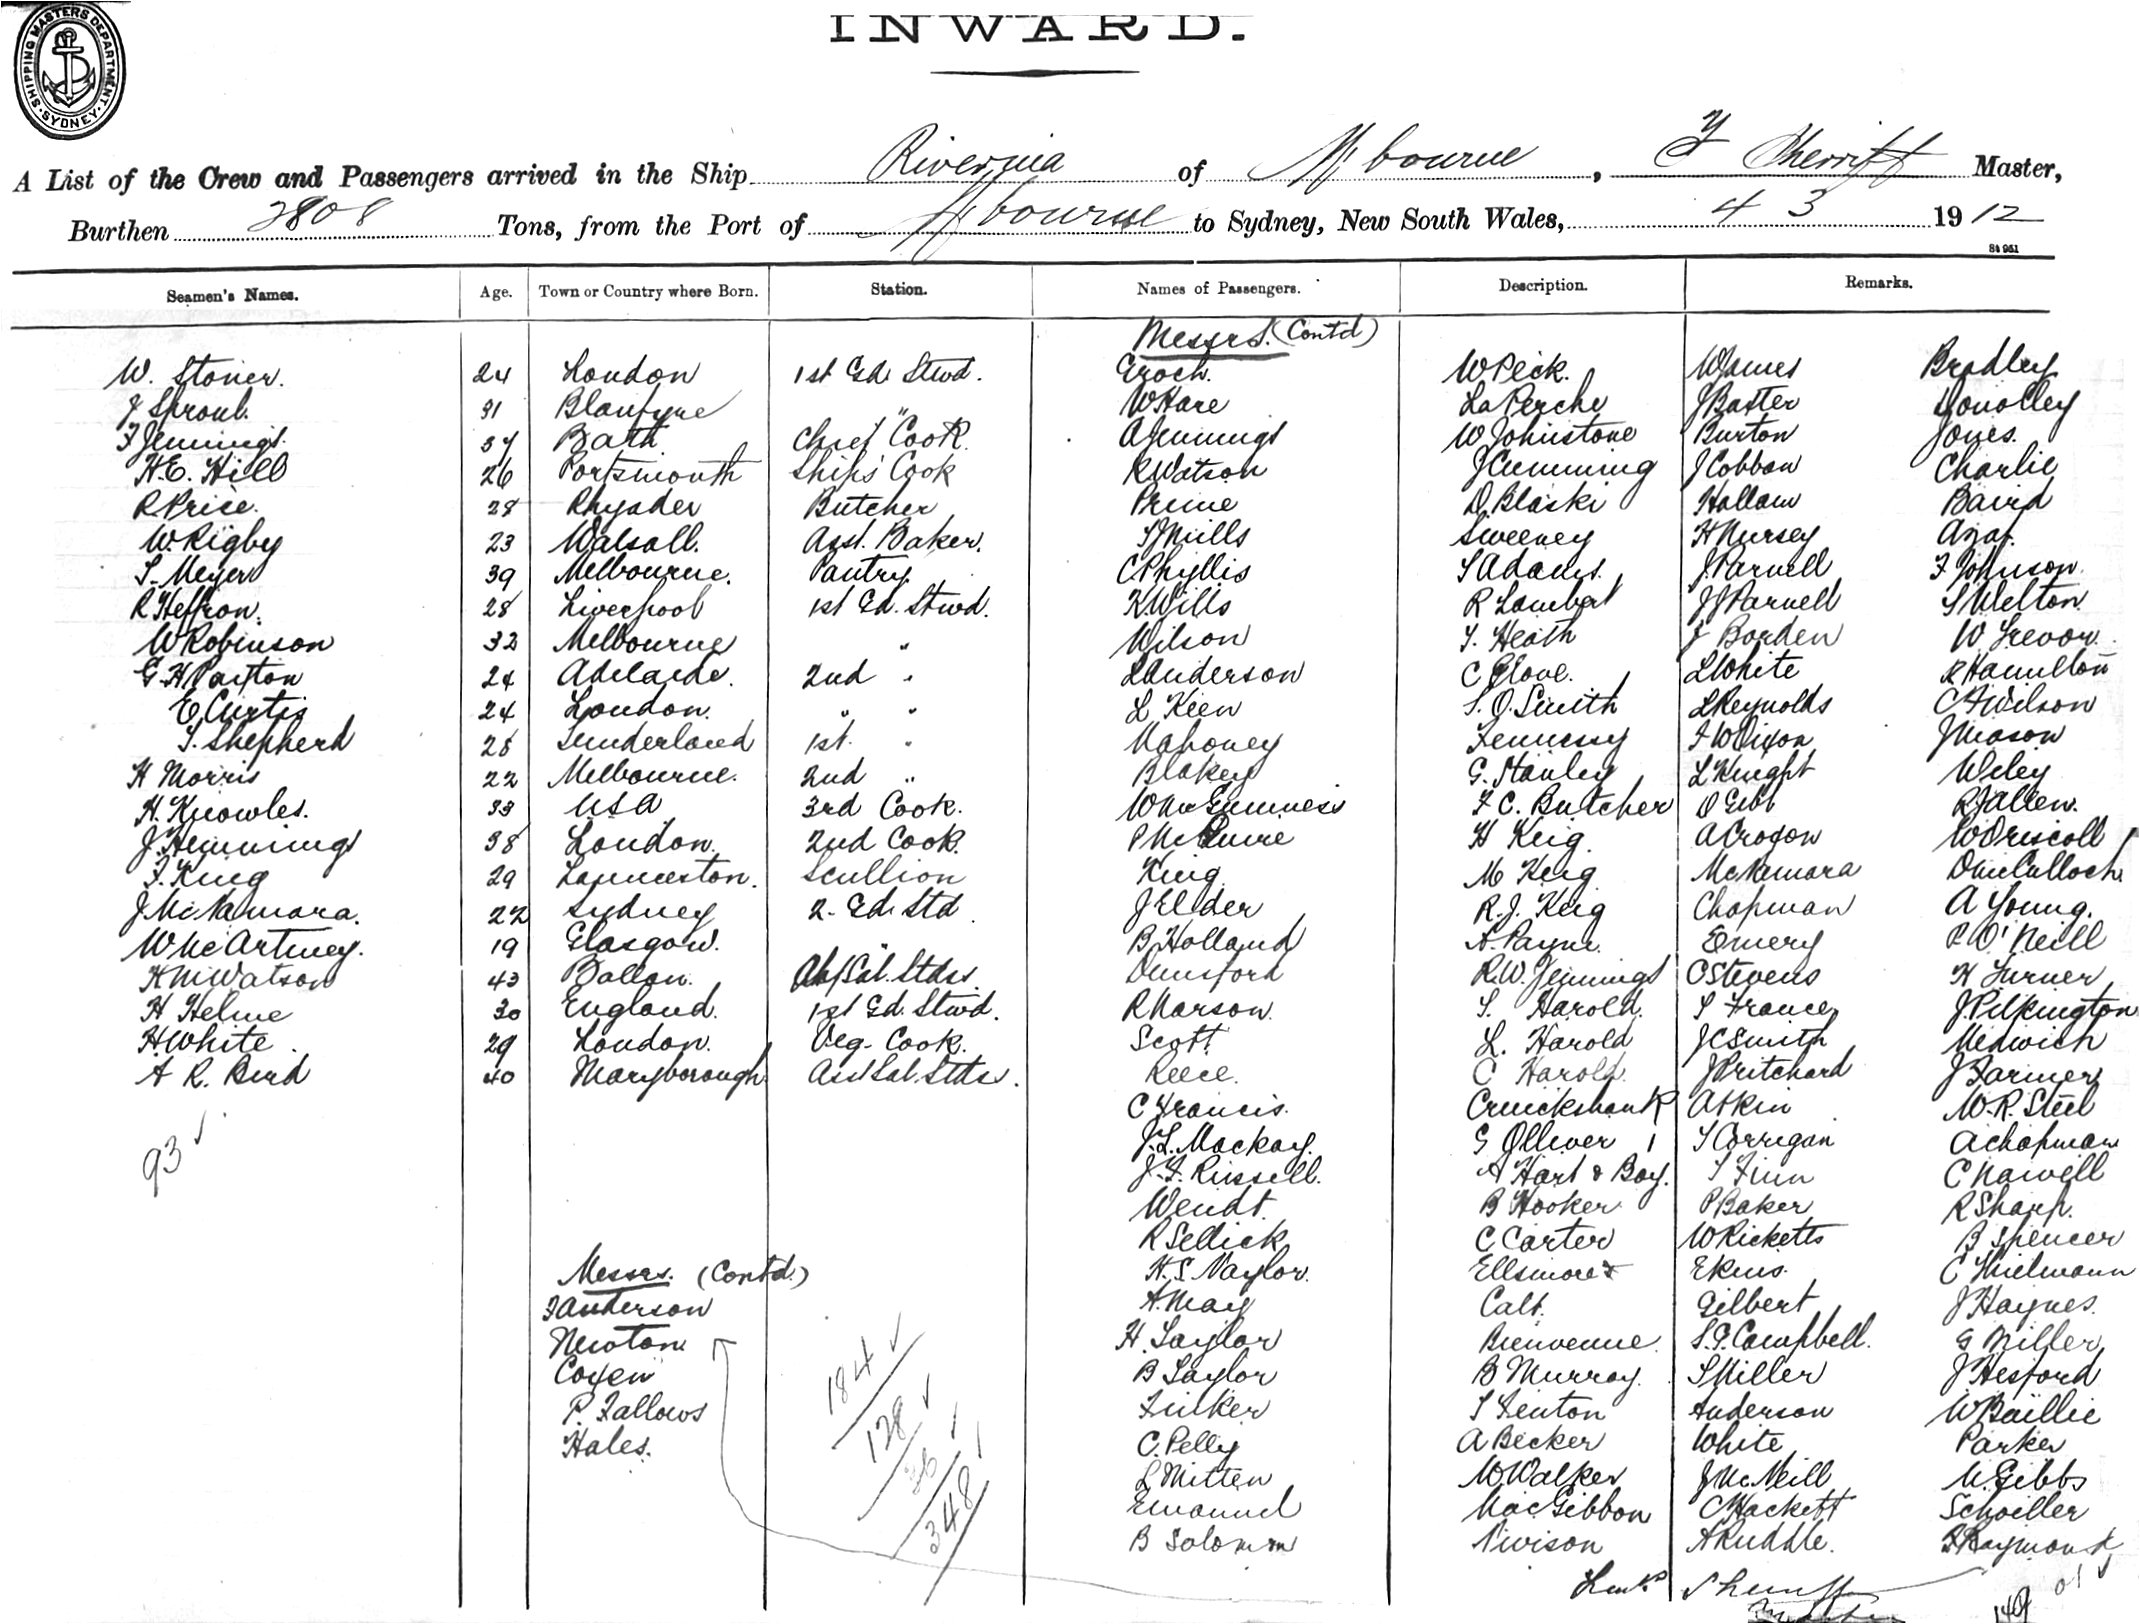 SHIPPING MASTERS DEPARTMENT. SYDNEY
INWARD.
A List of the Crew and Passengers arrived in the Ship Riverina of M'bourne, Sherriff Master,
Burthen 2808 Tons, from the Port of M'bourne to Sydney, New South Wales, 4 3 1912
Seamen's Names. Age. Town or Country where Born. Station. Names of Passengers. Description. Remarks.
Messrs. (Contd)
W. Stoner. 24 London 1st Ed. Stwd. Groch. W Peck. W James Bradley
J Sproul. 31 Blantyre " W Hare La Perche J Baxter Donolley
F Jennings. 37 Bath Chief Cook. A Jennings W Johnstone Burton Jones.
H.E. Hill 26 Portsmouth Ships' Cook R Watson J Cumming J Cobbon Charlie
R Price. 28 Rhyader Butcher Prime D. Blaski Hallam Baird
W. Rigby 23 Walsall. Asst. Baker. S Mills Sweeney H Nursey
S. Meyer 39 Melbourne. Pantry. C Phyllis S Adams. J. Parnell F Johnson.
R Heffron. 28 Liverpool 1st Ed. Stwd. H Wills R Lambert J J Parnell S Welton
W Robinson 32 Melbourne " Wilson T. Heath J Borden W Trevor.
G. H Paxton 24 Adelaide. 2nd " L Anderson C Glove. L White R Hamilton
E Curtis 24 London. " " L Keen S. O. Smith L Reynolds C A Wilson
T. Shepherd 28 Sunderland 1st. " Mahoney Fennessy F W Dixon J Mason
H Morris 22 Melbourne. 2nd " Blakey G. Stanley L Knight Wiley
H. Knowles. 33 USA 3rd Cook. W McGuinness F C. Butcher D Gibb R J Allen.
J. Hemmings 38 London. 2nd Cook. P McGuire H Keig. A Crogon W Driscoll
F. King 29 Launceston. Scullion King M Keig McNamara D McCulloch
J McNamara. 22 Sydney 2. Ed. Std J Elder R. J. Keig Chapman A Young.
W McArtney. 19 Glasgow. B Holland A. Payne. Emery P O'Neill
K M Watson 43 Ballan. Stdss. Dunsford R.W. Jennings C Stevens H Turner
H Helme 30 England. 1st Ed. Stwd. R Marson. S. Harold. S France J. Pilkington
H. White. 29 London. Veg. Cook. Scott L. Harold J C Smith Medwich
A R. Bird 40 Maryborough Ass. Sal. Stdss. Reece. C Harold. J Pritchard J Farmer
C Francis. Cruickshank Atkin W. R. Steel
93 J.L. Mackay. G Olliver 1 T Corrigan A Chapman
J. F. Russell. A Hart & Boy. T Finn C Naivell
Wendt. B Hooker P Baker R Sharp.
R Sellick C Carter W Ricketts B Spencer
Messrs. (Contd.) H. S. Naylor. Ellsmore Ekins. C Thielmann
F Anderson A. May Calt. Gilbert J Haynes.
Newton H Taylor Bienvenue S. G. Campbell. G Miller
Coxen 184 B Taylor B Murray. S Miller J Hesford
P. Fallows 128 Tinker T Fenton Anderson W Baillie
Hales. 36 C. Pelly A Becker White Parker
348 L Mitten W. Walker J McNeill W. Gibbs
Emanuel MacGibbon C Hackett Schoiller
B Solomon Vivison A Ruddle. B Raymond